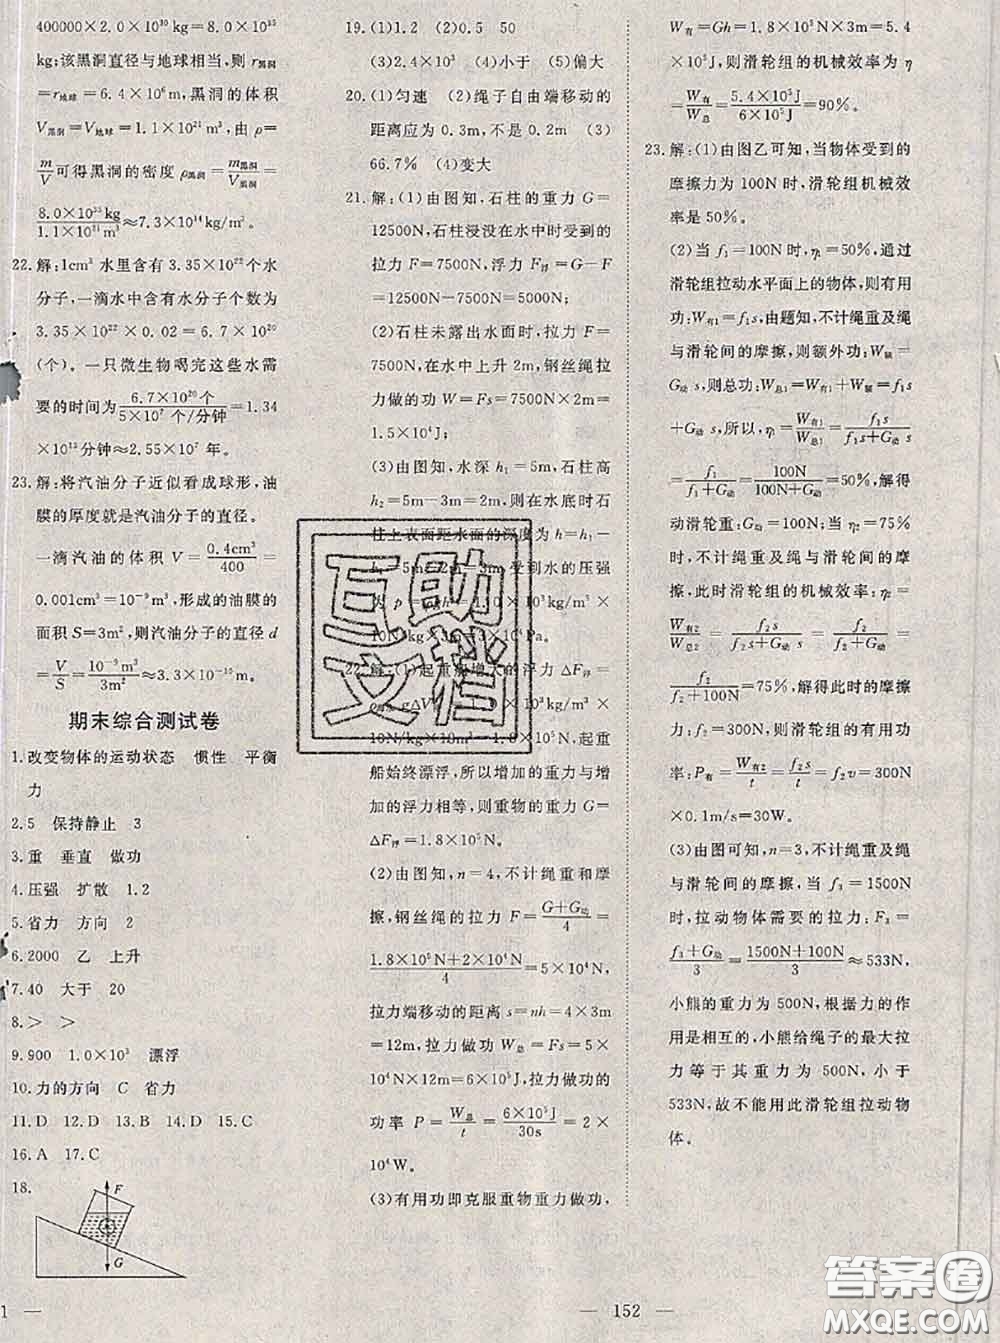 400000×2.0×10³⁰kg=8.0×10³⁵
kg;该黑洞直径与地球相当,则 r黑洞
=r地球=6.4×10⁶m,黑洞的体积
V黑洞=V地球=1.1×10²¹m³,由 ρ=
m/V可得黑洞的密度 ρ黑洞=m黑洞/V黑洞=
8.0×10³⁵kg/1.1×10²¹m³≈7.3×10¹⁴kg/m³.
22.解:1cm³ 水里含有 3.35×10²²个水
分子,一滴水中含有水分子个数为
3.35×10²²×0.02=6.7×10²⁰
(个). 一只微生物喝完这些水需
要的时间为6.7×10²⁰个/5×10⁷个/分钟=1.34
×10¹³分钟≈2.55×10⁷ 年.
23.解:将汽油分子近似看成球形,油
膜的厚度就是汽油分子的直径.
一滴汽油的体积 V=0.4cm³/400=
0.001cm³=10⁻⁹m³,形成的油膜的
面积 S=3m²,则汽油分子的直径 d
=V/S=10⁻⁹m³/3m²≈3.3×10⁻¹⁰m.
期末综合测试卷
1.改变物体的运动状态 惯性 平衡
力
2.5 保持静止 3
3.重 垂直 做功
4.压强 扩散 1.2
5.省力 方向 2
6.2000 乙 上升
7.40 大于 20
8.> >
9.900 1.0×10³ 漂浮
10.力的方向 C 省力
11.D 12.D 13.B 14.D 15.D
16.A 17.C
18.
F
G
1 —
19.(1)1.2 (2)0.5 50
(3)2.4×10³ (4)小于 (5)偏大
20.(1)匀速 (2)绳子自由端移动的
距离应为 0.3m,不是 0.2m (3)
66.7% (4)变大
21.解:(1)由图知,石柱的重力 G=
12500N,石柱浸没在水中时受到的
拉力 F=7500N,浮力 F浮=G−F
=12500N−7500N=5000N;
(2)石柱未露出水面时,拉力 F=
7500N,在水中上升 2m,钢丝绳拉
力做的功 W=Fs=7500N×2m=
1.5×10⁴J;
(3)由图知,水深 h₁=5m,石柱高
h₂=5m−3m=2m,则在水底时石
柱上表面距水面的深度为 h=h₁−
h₂=5m−2m=3m,受到水的压强
为 p=ρgh=1.0×10³kg/m³×
10N/kg×3m=3×10⁴Pa.
22.解:(1)起重船增大的浮力 ΔF浮=
ρgΔV
10N/kg×18m³=1.8×10⁵N,起重
船始终漂浮,所以增加的重力与增
加的浮力相等,则重物的重力 G=
ΔF浮=1.8×10⁵N.
(2)由图知,n=4,不计绳重和摩
擦,钢丝绳的拉力 F=G+G动/4=
1.8×10⁵N+2×10⁴N/4=5×10⁴N,
拉力端移动的距离 s=nh=4×3m
=12m,拉力做功 W总=Fs=5×
10⁴N×12m=6×10⁵J,拉力做功的
功率 P=W总/t=6×10⁵J/30s=2×
10⁴W.
(3)有用功即克服重物重力做功,
— 152 —
W有=Gh=1.8×10⁵N×3m=5.4
×10⁵J,则滑轮组的机械效率为 η
=W有/W总=5.4×10⁵J/6×10⁵J=90%.
23.解:(1)由图乙可知,当物体受到的
摩擦力为 100N 时,滑轮组机械效
率是 50%.
(2)当 f₁=100N 时,η₁=50%,通过
滑轮组拉动水平面上的物体,则有用
功:W有1=f₁s,由题知,不计绳重及绳
与滑轮间的摩擦,则额外功:W额=
G动s,则总功:W总1=W有1+W额=f₁s
+G动s,所以,η₁=W有1/W总1=f₁s/f₁s+G动s
=f₁/f₁+G动=100N/100N+G动=50%,解得
动滑轮重:G动=100N;当 η₂=75%
时,不计绳重及绳与滑轮间的摩
擦,则此时滑轮组的机械效率:η₂=
W有2/W总2=f₂s/f₂s+G动s=f₂/f₂+G动=
f₂/f₂+100N=75%,解得此时的摩擦
力:f₂=300N,则拉力所做的有用功
率:P有=W有2/t=f₂s/t=f₂v=300N
×0.1m/s=30W.
(3)由图可知,n=3,不计绳重及绳
与滑轮间的摩擦,当 f₃=1500N
时,拉动物体需要的拉力:F₃=
f₃+G动/3=1500N+100N/3≈533N,
小熊的重力为 500N,根据力的作
用是相互的,小熊给绳子的最大拉
力等于其重力为 500N,小于
533N,故不能用此滑轮组拉动物
体.
互助
文档
答案圈
MXQE.COM